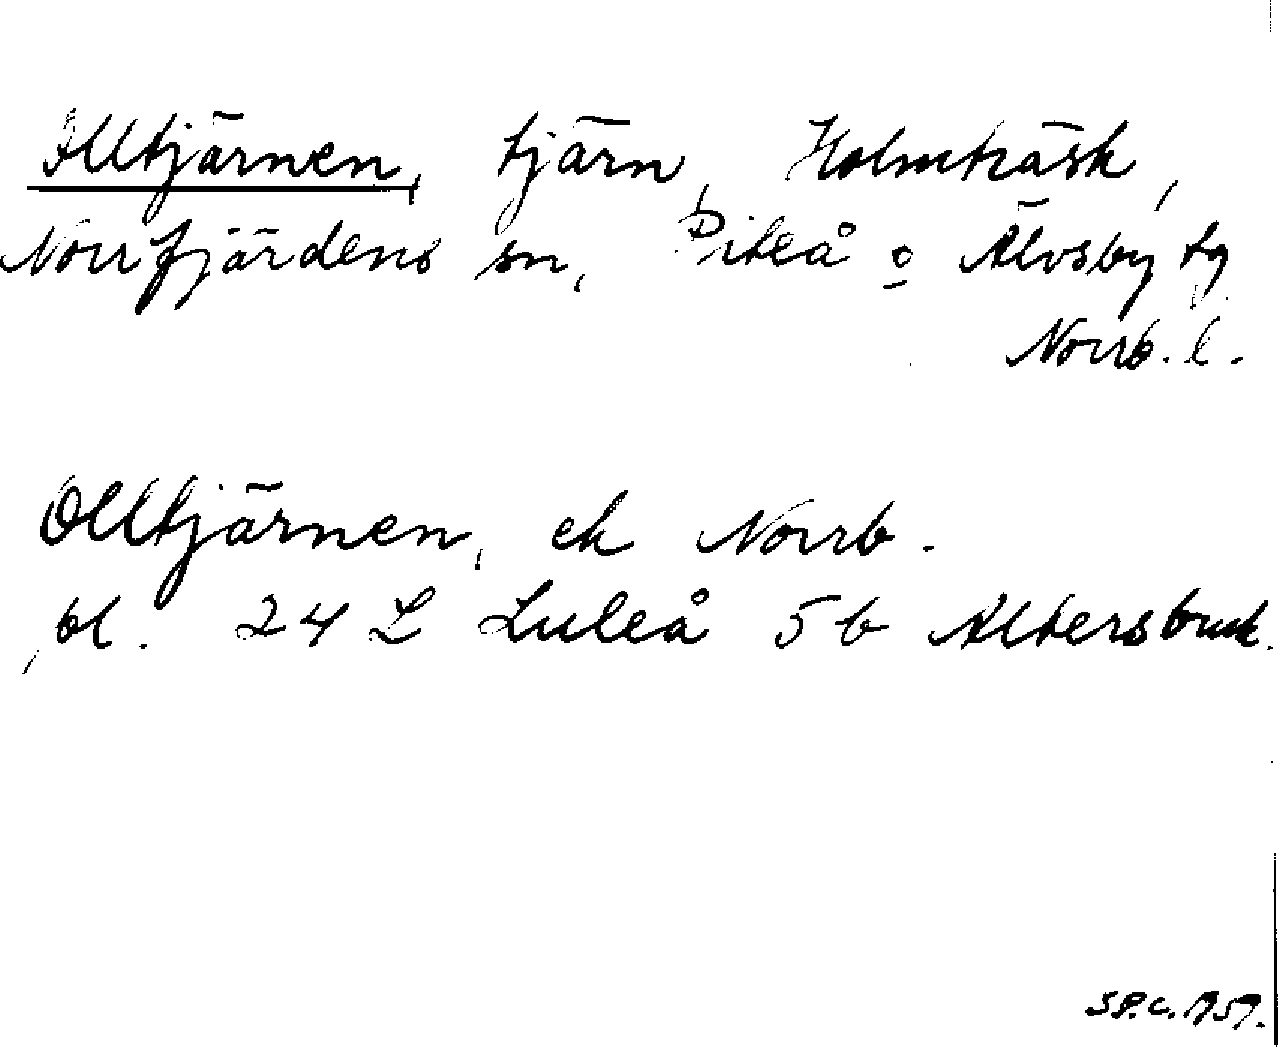 Illtjärnen, tjärn, Holmträsk,
Norrfjärdens sn, Piteå o Älvsby tg
Norrb. l.
Olltjärnen, ek Norrb.
bl. 24 L Luleå 5 b Altersbruk.